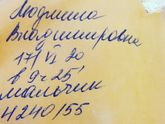 Людмила
Владимировна
17/VI 20
в 9ч 25'
мальчик
4240/55